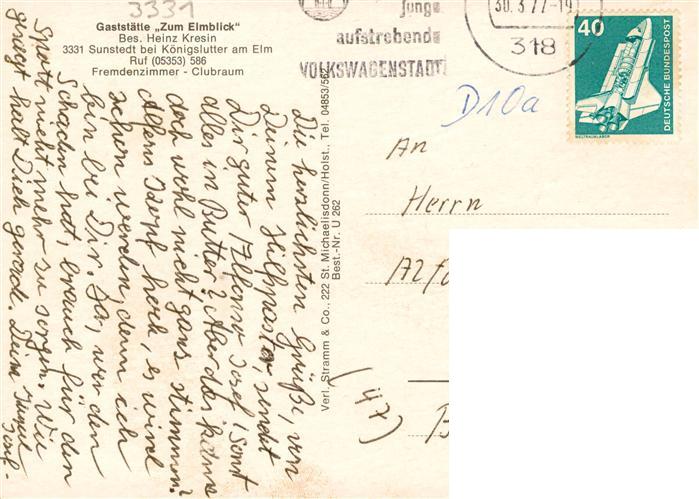 3331
Gaststätte „Zum Elmblick"
Bes. Heinz Kresin
3331 Sunstedt bei Königslutter am Elm
Ruf (05353) 586
Fremdenzimmer - Clubraum
junge
aufstrebende
VOLKSWAGENSTADT
30.3.77-19
318
40
DEUTSCHE BUNDESPOST
WELTRAUMLABOR
D10a
Die herzlichsten Grüße, von
Deinem Hilfpastor, sendet
Dir guter Alfons Josef, sonst
alles in Butter? Aber das kann
doch wohl nicht ganz stimmen?
Alfons Kopf hoch, es wird
schon werden, denn ich
bin bei Dir. Ja, wer den
Schaden hat, brauch für den
Spott nicht mehr zu sorgen. Wie
gesagt halt Dich gerad. Dein
Josef -
Verl. Stramm & Co., 222 St. Michaelisdonn/Holst., Tel. 04853/562
Best.-Nr. U 262
An
Herrn
Alfo
(47)
B